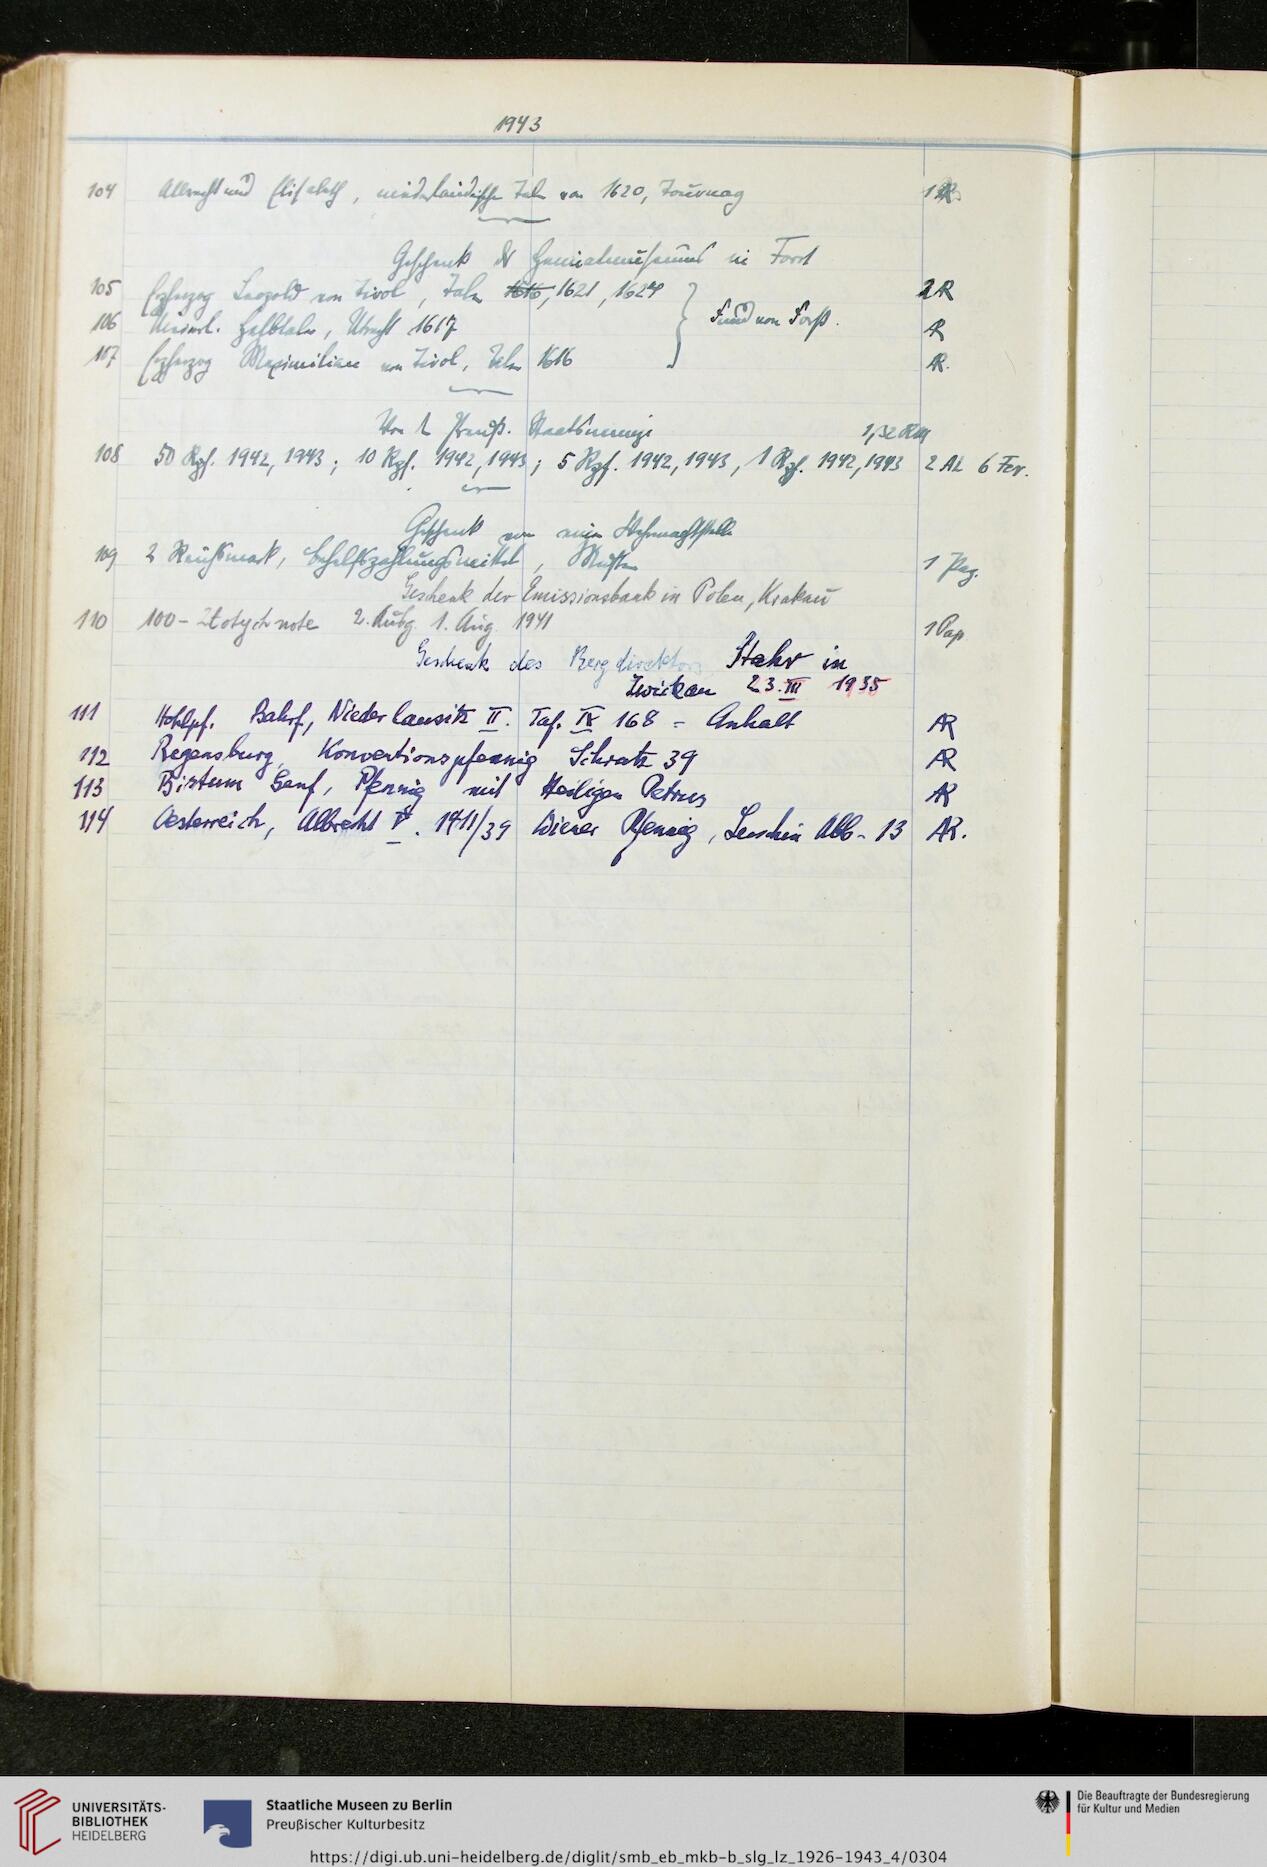 1943
104 Albrecht und Elisabeth, niederländischer Taler von 1620, Tournay 1 AR
Geschenk des Heimatmuseums in Forst
105 Erzherzog Leopold von Tirol, Taler 1616, 1621, 1624 2 AR
106 Niederl. Halbtaler, Utrecht 1617 Fund von Forst. AR
107 Erzherzog Maximilian von Tirol, Taler 1616 AR.
Von d. Preuß. Staatsmünze 1,32 RM
108 50 Rpf. 1942, 1943; 10 Rpf. 1942, 1943; 5 Rpf. 1942, 1943, 1 Rpf. 1942, 1943 2 AL 6 Fer.
Geschenk von einer Wehrmachtstelle
109 2 Reichsmark, Behelfszahlungsmittel, Muster 1 Pap.
Geschenk der Emissionsbank in Polen, Krakau
110 100-Zlotych note 2. Ausg. 1. Aug. 1941 1 Pap
Geschenk des Bergdirektors Stahr in
Zwickau 23.III 1935
111 Hohlpf. Bahrf, Niederlausitz II. Taf. IX 168 - Anhalt AR
112 Regensburg, Konventionspfennig Schratz 39 AR
113 Bistum Genf, Pfennig mit Heiligen Petrus AR
114 Oesterreich, Albrecht V. 1411/39 Wiener Pfennig, Luschin Abb. 13 AR.
UNIVERSITÄTS-
BIBLIOTHEK
HEIDELBERG
Staatliche Museen zu Berlin
Preußischer Kulturbesitz
Die Beauftragte der Bundesregierung
für Kultur und Medien
https://digi.ub.uni-heidelberg.de/diglit/smb_eb_mkb-b_slg_lz_1926-1943_4/0304